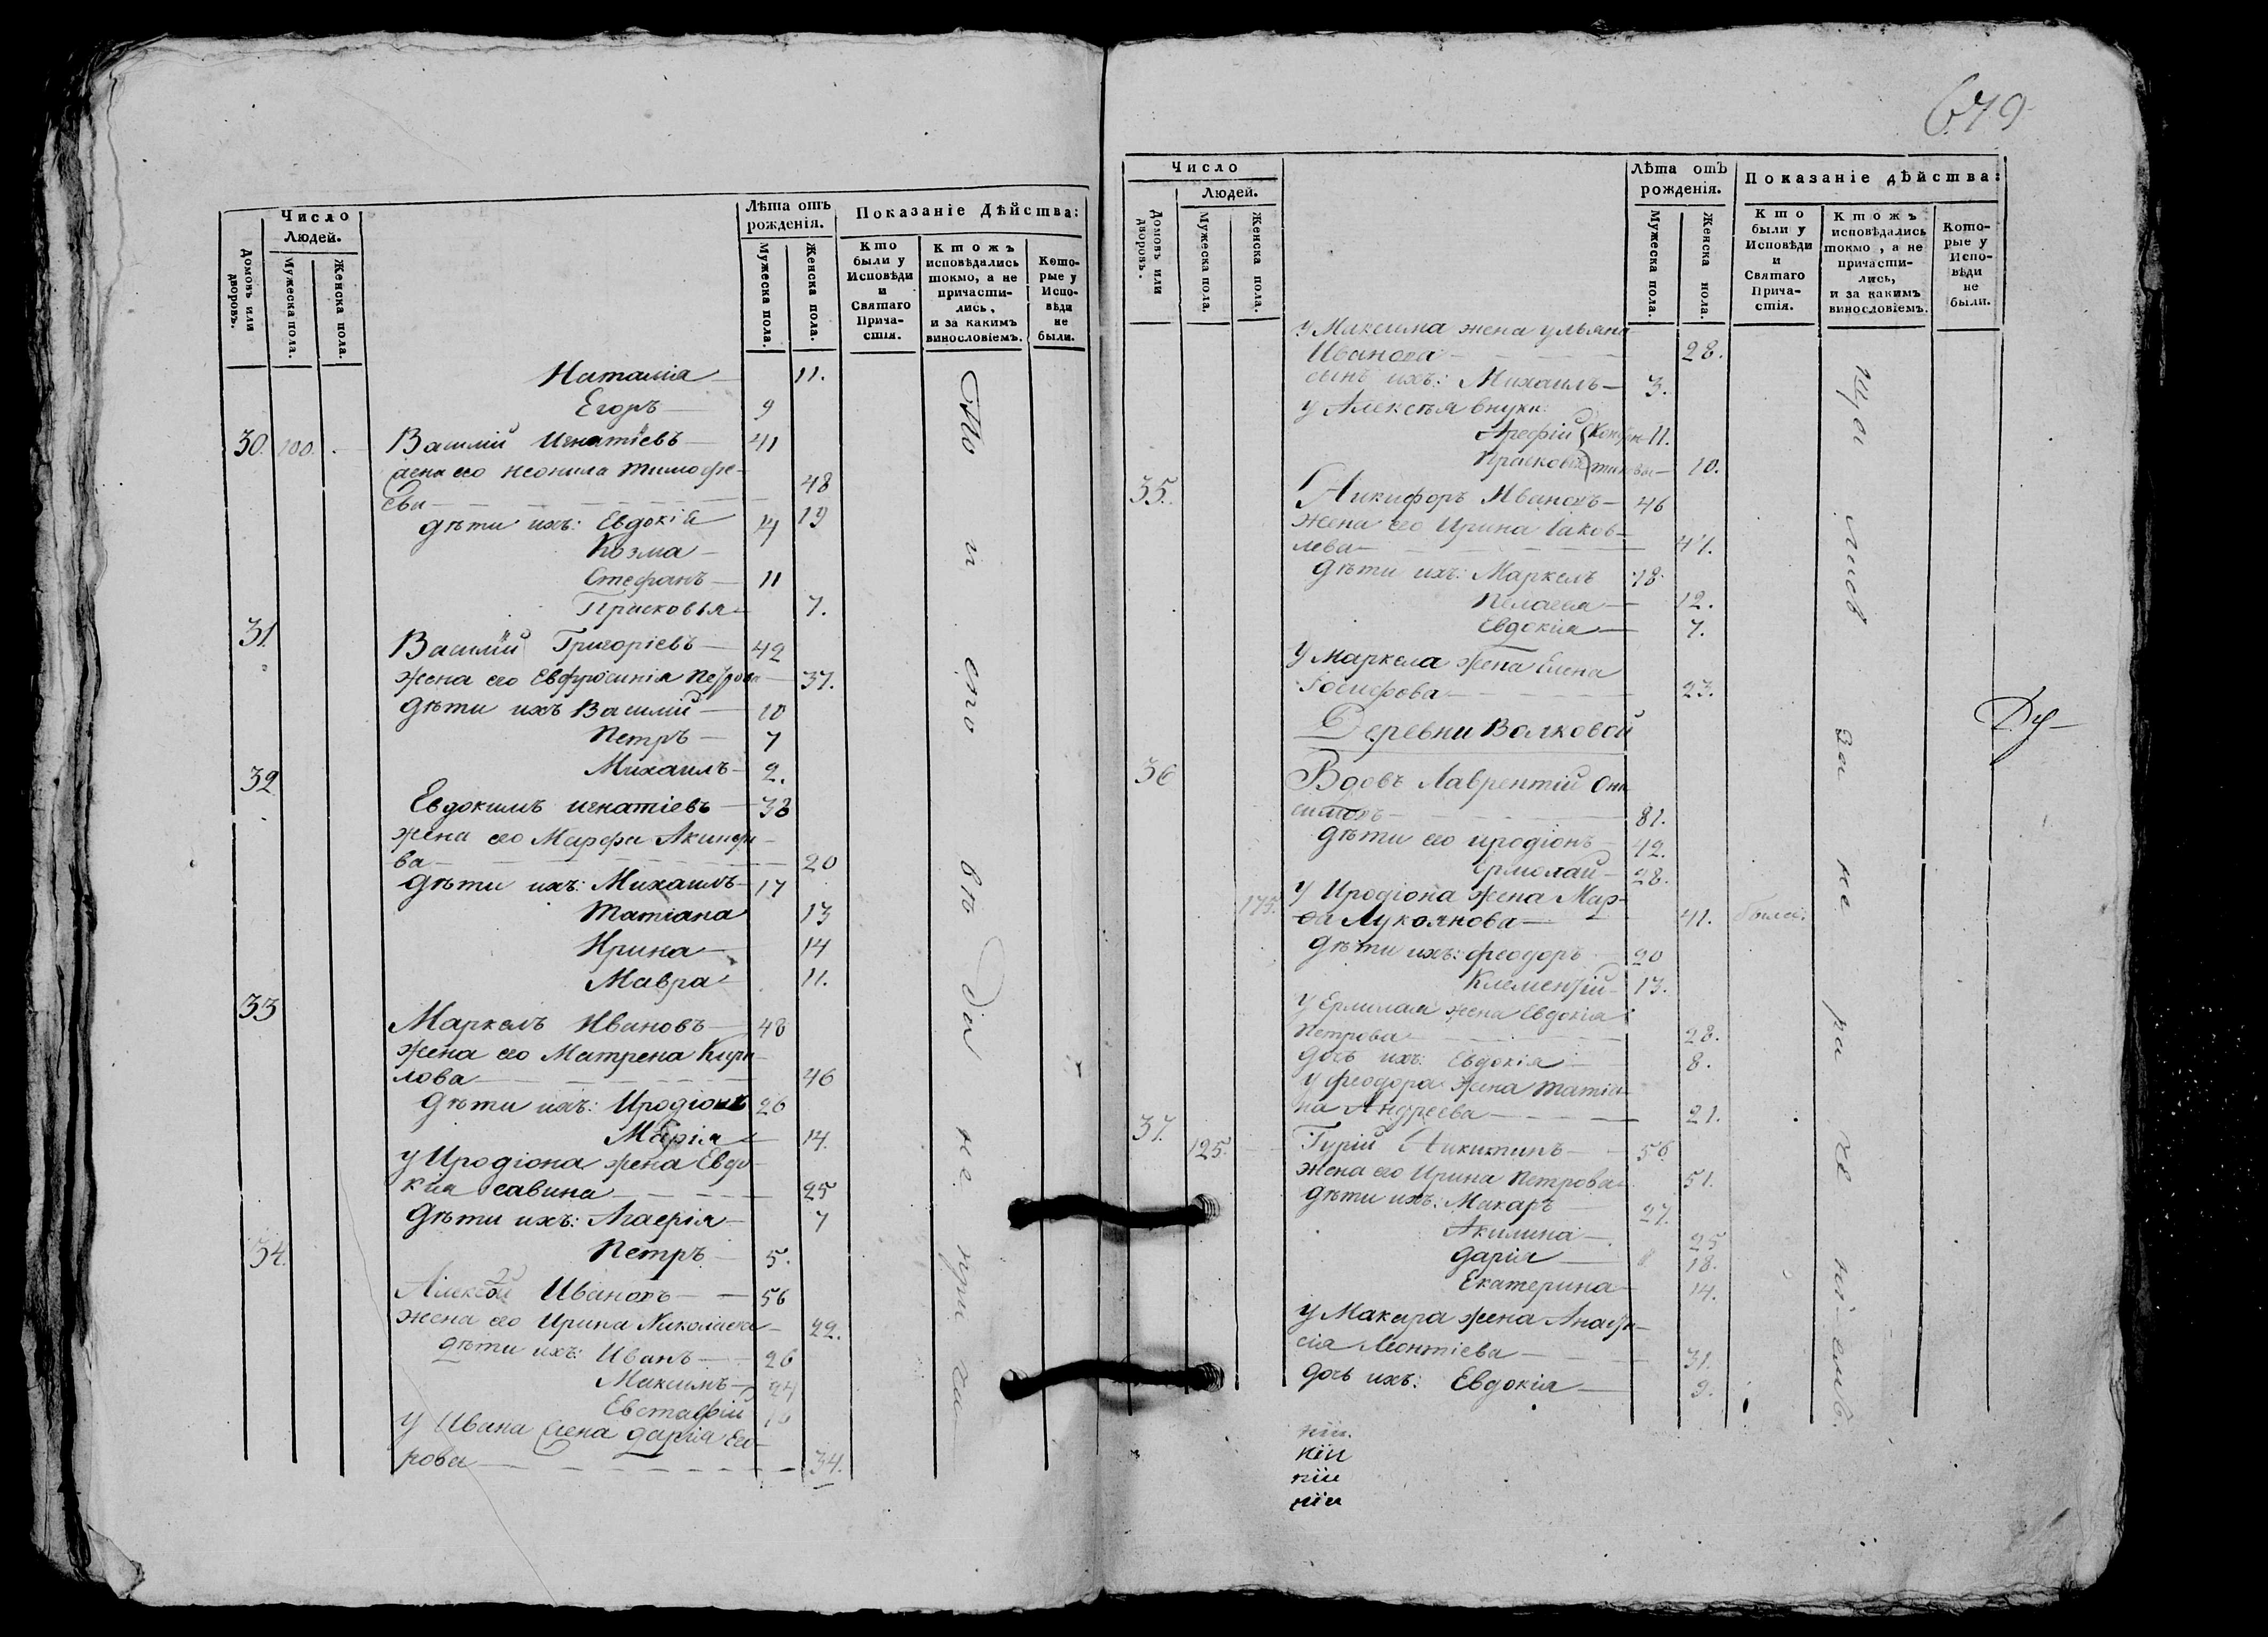 Число
Людей.
Домовъ или дворовъ.
Мужеска пола.
Женска пола.
Лѣта отъ рожденія.
Мужеска пола.
Женска пола.
Показаніе Дѣйства:
Кто были у Исповѣди и Святаго Прича-стія.
Ктожъ исповѣдались токмо, а не причасти-лись, и за какимъ винословіемъ.
Кото-рые у Испо-вѣди не были.
Наталія 11.
Егоръ 9
30. 100. Василій Игнатіевъ 41
жена его Неонила Тимофе-
ева 48
дѣти ихъ: Евдокія 19
Козма 14
Стефанъ 11
Прасковья 7.
31. Василій Григоріевъ 42
жена его Евфросинія Петрова 37.
дѣти ихъ Василій 10
Петръ 7
Михаилъ 2.
32 Евдокимъ Игнатіевъ 38
жена его Марфа Акинфи-
ва 20
дѣти ихъ: Михаилъ 17
Татіана 13
Ирина 14
Мавра 11.
33 Маркелъ Ивановъ 48
жена его Матрена Кири-
лова 46
дѣти ихъ: Иродіонъ 26
Марія 14.
у Иродіона жена Евдо-
кія Савина 25
дѣти ихъ: Агафія 7
Петръ 5.
34. Алексѣй Ивановъ 56
жена его Ирина Николаева 22.
дѣти ихъ: Иванъ 26
Максимъ 24
Евстафій
у Ивана жена Дарія Его-
рова 34.
679
Число
Людей.
Домовъ или дворовъ.
Мужеска пола.
Женска пола.
Лѣта отъ рожденія.
Мужеска пола.
Женска пола.
Показаніе дѣйства:
Кто были у Исповѣди и Святаго Прича-стія.
Ктожъ исповѣдались токмо, а не причасти-лись, и за какимъ винословіемъ.
Кото-рые у Испо-вѣди не были.
у Максима жена Ульяна
Иванова 28.
сынъ ихъ: Михаилъ 3.
у Алексѣя внуки:
Арефій 11.
Прасковія 10.
35. Никифоръ Ивановъ 46
жена его Ирина Іаков-
лева 47.
дѣти ихъ: Маркелъ 18
Пелагея 12.
Евдокія 7.
у Маркела жена Елена
Іосифова 23.
Деревни Волковой
36 Вдовъ Лаврентій Они
симовъ 81.
дѣти его Иродіонъ 42.
Ермолай 28.
у Иродіона жена Мар-
175. фа Лукоянова 41. была.
дѣти ихъ: Феодоръ 20
Клементій 13.
у Ермилая жена Евдокія
Петрова 28.
дочь ихъ: Евдокія 8.
у Феодора жена Татіа
на Андреева 21.
37. 125. Гурій Никитинъ 56
жена его Ирина Петрова 51.
дѣти ихъ: Макаръ 27.
Акилина 25
Дарія 18.
Екатерина 14.
у Макара жена Анаста-
сія Леонтіева 31.
дочь ихъ: Евдокія 9.